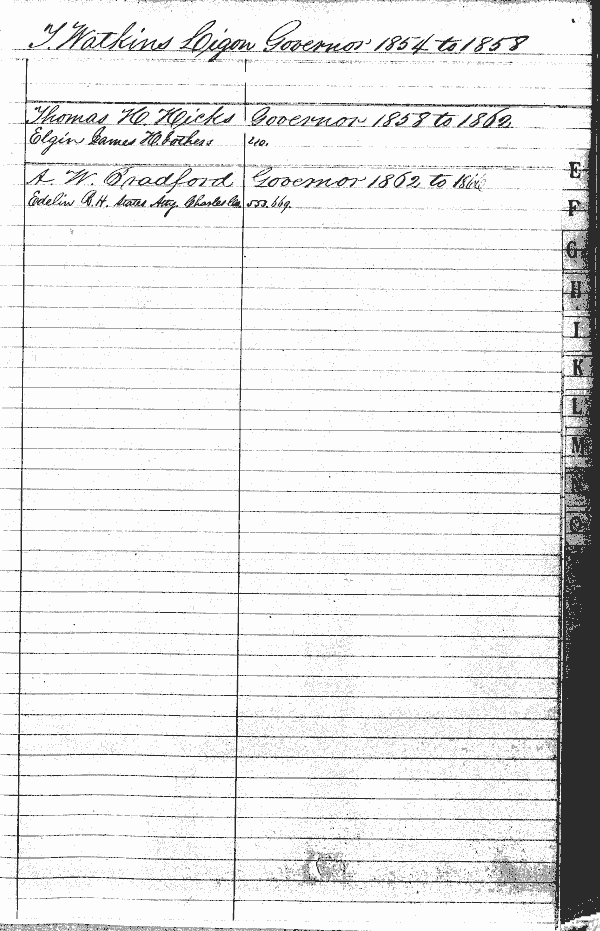 T. Watkins Ligon Governor 1854 to 1858
Thomas H. Hicks Governor 1858 to 1862
Elgin James H. & others 210.
A. W. Bradford Governor 1862 to 1866
Edelin R.H. States Atty. Charles Co. 553.669.
E
F
G
H
I
K
L
M
N
O